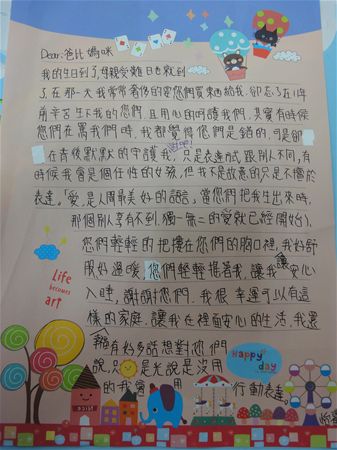 Dear:爸比媽咪
我的生日到了,母親受難日也就到
了,在那一天我常常奢侈的要你們買東西給我,卻忘了在11年
前辛苦生下我的您們,且用心的呵護我們,其實有時候
您們在罵我們時,我都覺得您們是錯的,可是卻
在背後默默的守護我,只是表達方式跟別人不同,有
時候我會是個任性的女孩,但我不是故意的只是不擅於
表達。「愛,是人間最美好的語言,當您們把我生出來時,
那個別人享有不到,獨一無二的愛就已經開始」,
您們輕輕的把摟在您們的胸口裡,我好舒
服好溫暖,您們輕輕搖著我,讓我安心
入睡,謝謝您們,我很幸運可以有這
樣的家庭,讓我在裡面安心的生活,我還
有好多話想對您們
說,只是光說是沒用
的我會用行動表達。
Life
becomes
art
Happy
day